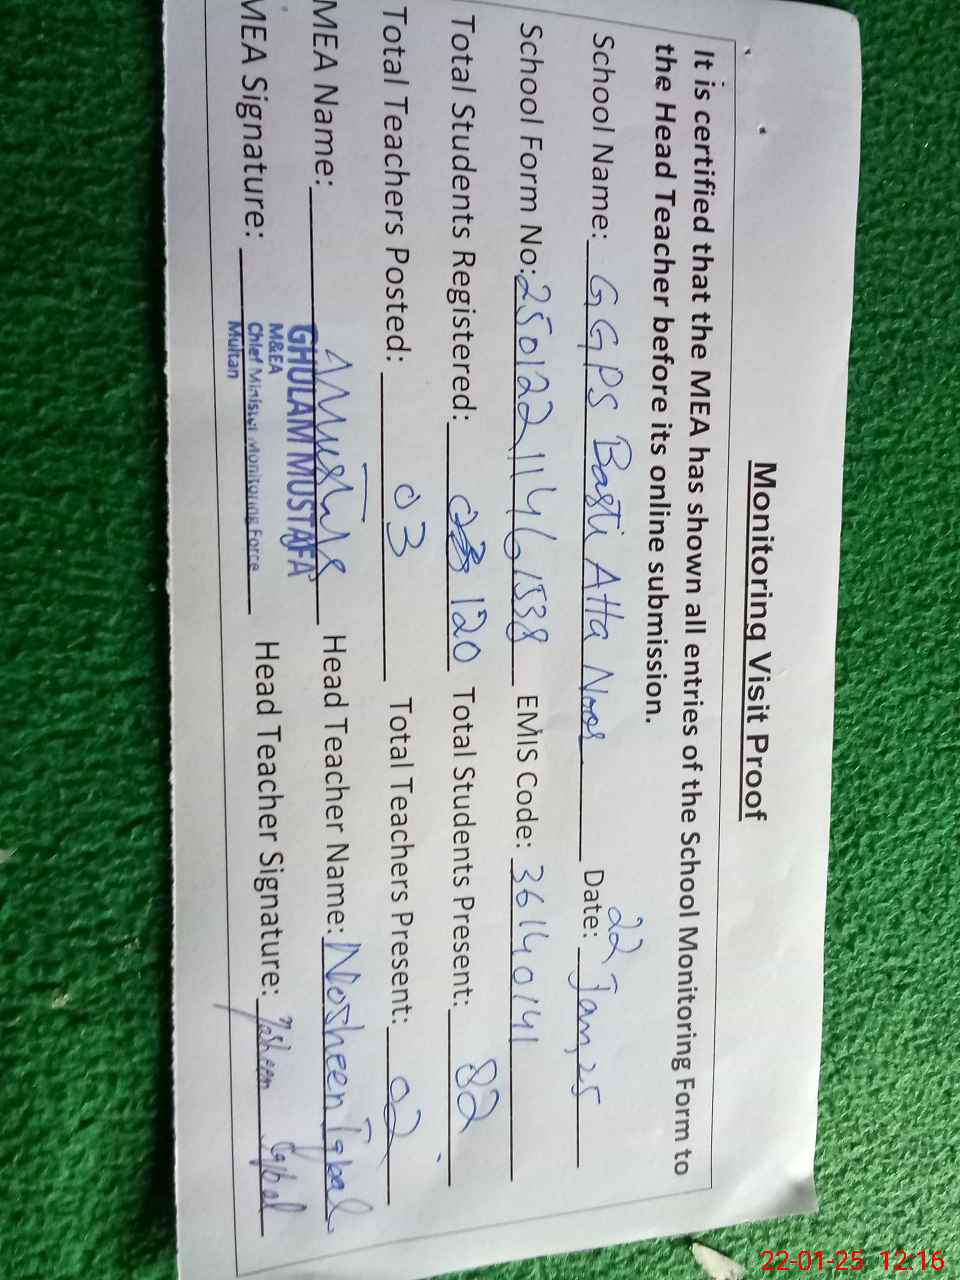 Monitoring Visit Proof
It is certified that the MEA has shown all entries of the School Monitoring Form to
the Head Teacher before its online submission.
School Name: GGPS Basti Atta Noor Date: 22 Jan, 25
School Form No: 25012211461538 EMIS Code: 36140141
Total Students Registered: 120 Total Students Present: 82
Total Teachers Posted: 03 Total Teachers Present: 02
MEA Name: Head Teacher Name: Nosheen Iqbal
GHULAM MUSTAFA
M&EA
Chief Minister Monitoring Force
Multan
MEA Signature: Head Teacher Signature: Nosheen Iqbal
22-01-25 12:16